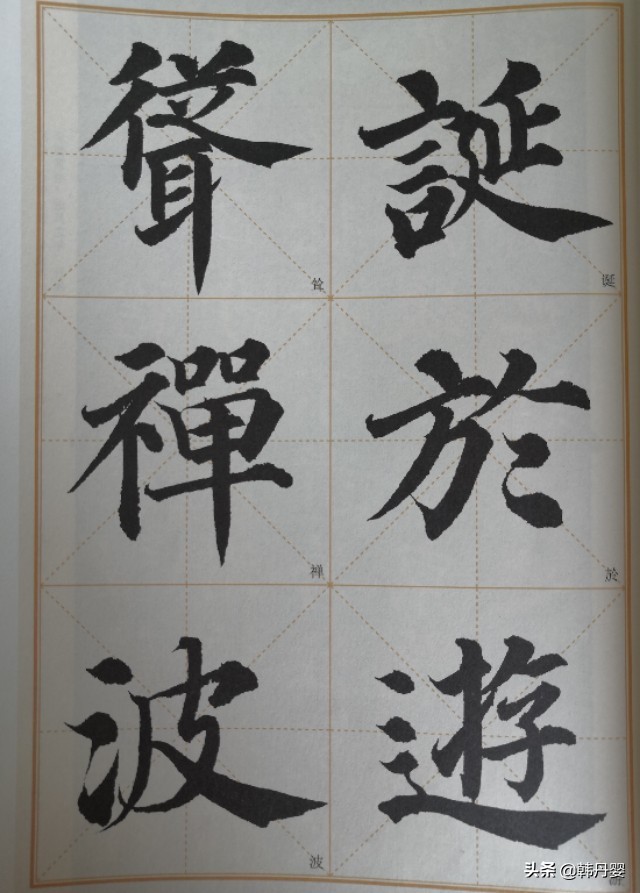 誕
诞
於
於
遊
聳
耸
禪
禅
波
波
头条 @韩丹婴